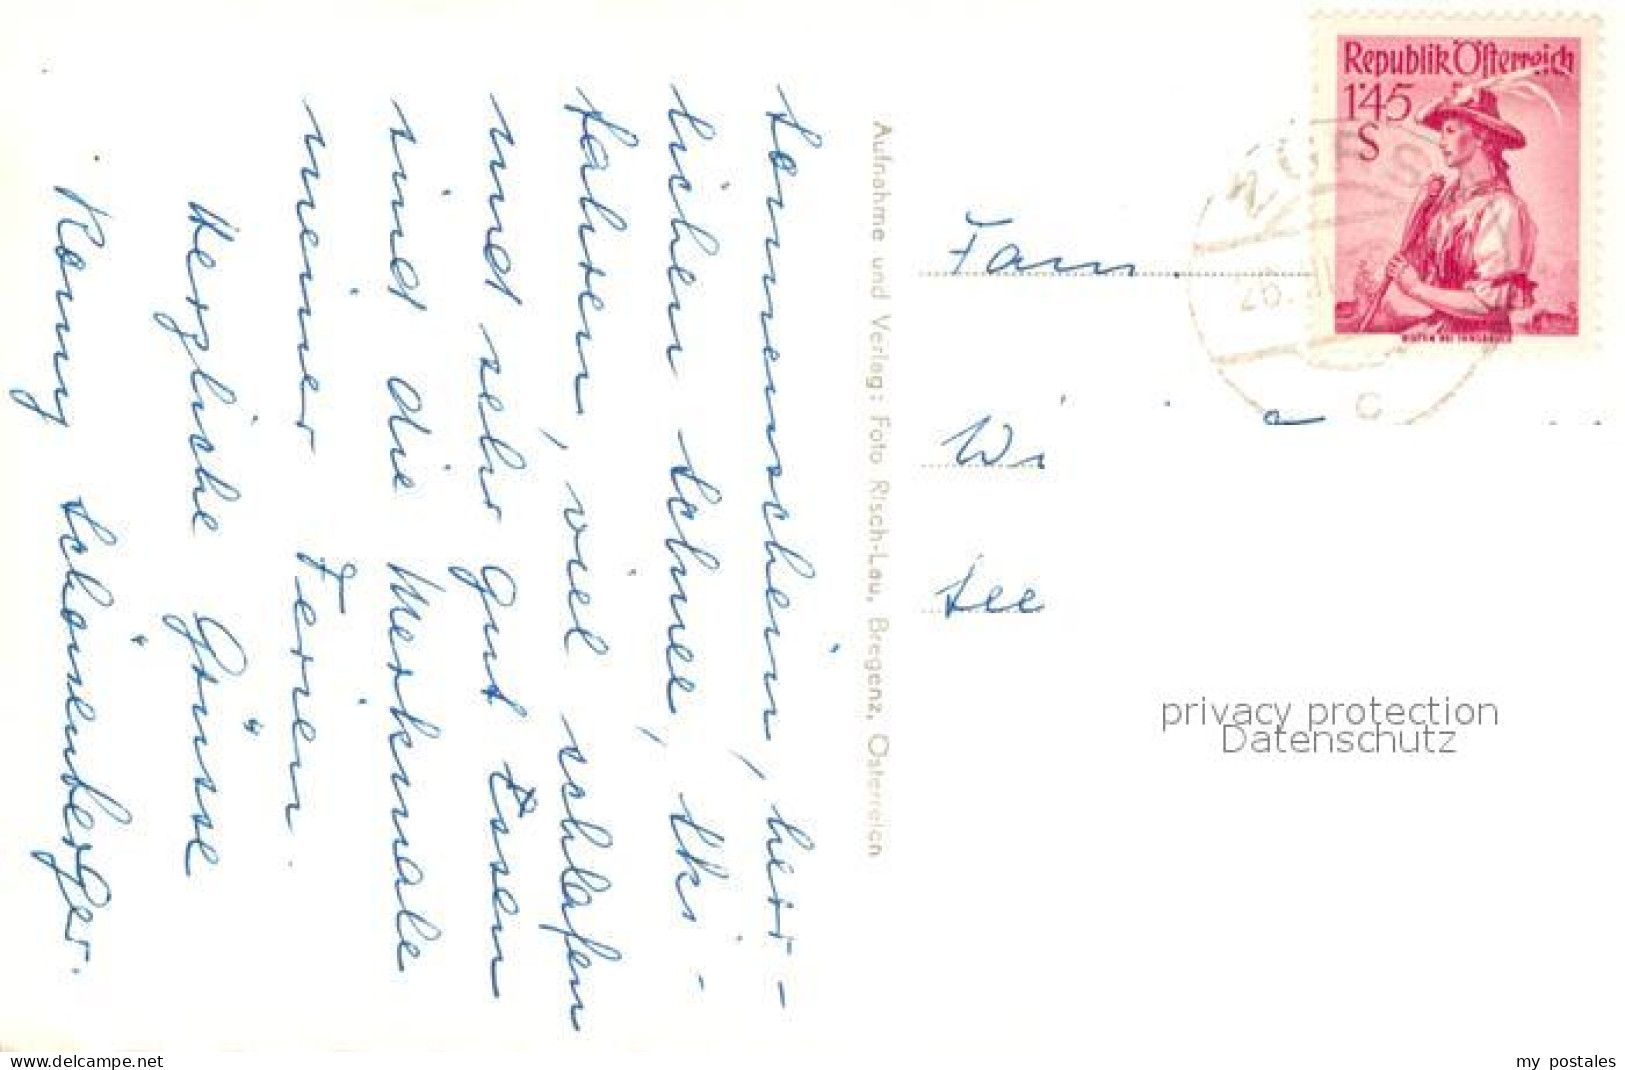 Sonnenschein, herr-
lichen Schnee, Ski-
fahren, viel schlafen
und sehr gut Essen
sind die Merkmale
meiner Ferien.
Herzliche Grüsse
Romy Schönenberger.
Aufnahme und Verlag: Foto Risch-Lau, Bregenz, Österreich
Republik Österreich
1'45
S
WILTEN BEI INNSBRUCK
ZÜRS
26.
c
Fam.
Wi
See
privacy protection
Datenschutz
www.delcampe.net
my_postales